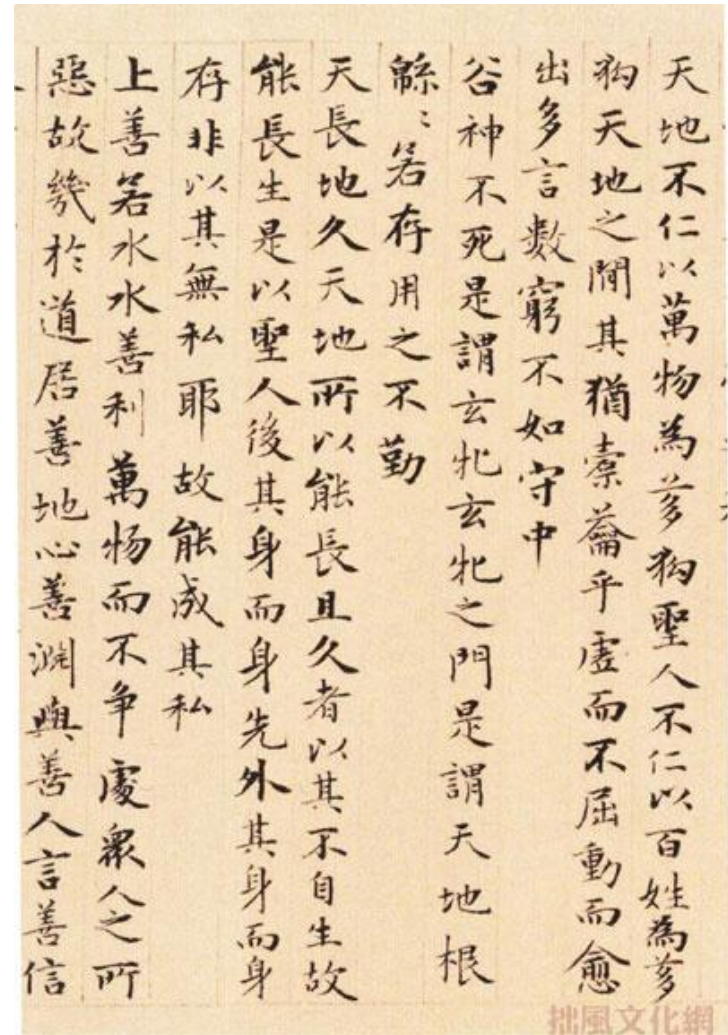 天地不仁以萬物為芻狗聖人不仁以百姓為芻
狗天地之間其猶橐蘥乎虛而不屈動而愈
出多言數窮不如守中
谷神不死是謂玄牝玄牝之門是謂天地根
緜〻若存用之不勤
天長地久天地所以能長且久者以其不自生故
能長生是以聖人後其身而身先外其身而身
存非以其無私耶故能成其私
上善若水水善利萬物而不争處衆人之所
惡故幾於道居善地心善淵與善人言善信
拙風文化網